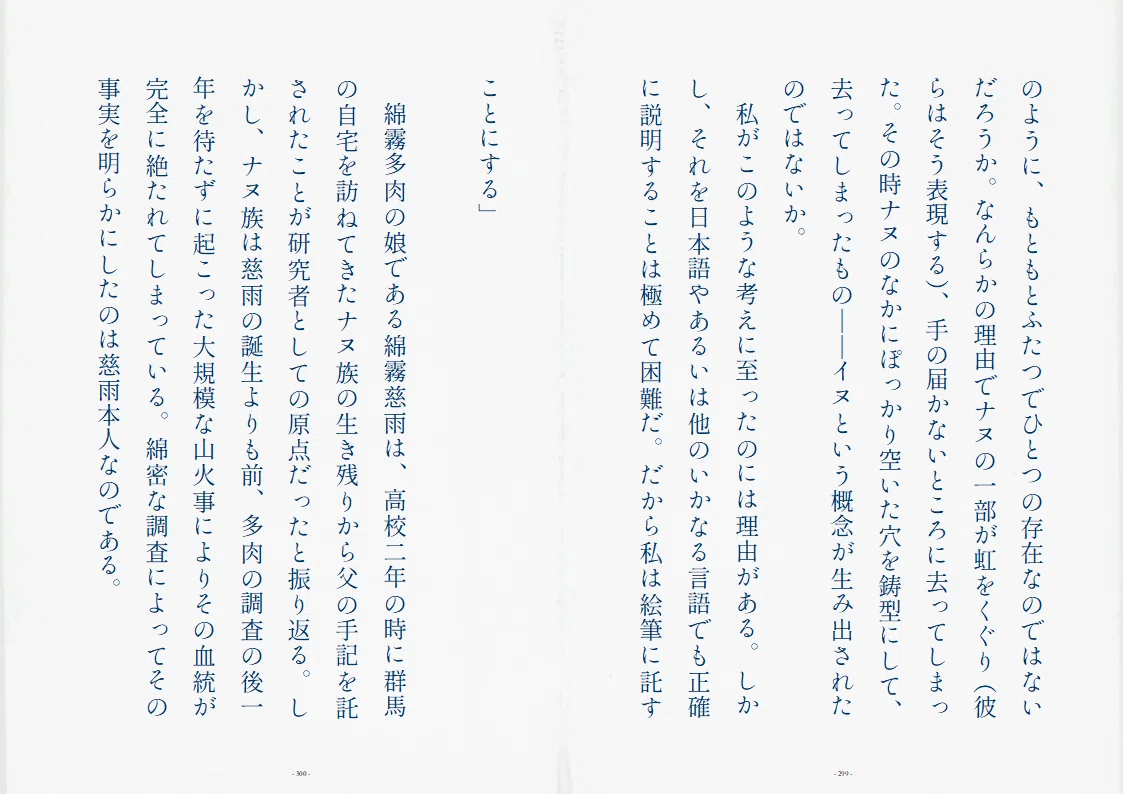 のように、もともとふたつでひとつの存在なのではない
だろうか。なんらかの理由でナヌの一部が虹をくぐり（彼
らはそう表現する）、手の届かないところに去ってしまっ
た。その時ナヌのなかにぽっかり空いた穴を鋳型にして、
去ってしまったもの――イヌという概念が生み出された
のではないか。
私がこのような考えに至ったのには理由がある。しか
し、それを日本語やあるいは他のいかなる言語でも正確
に説明することは極めて困難だ。だから私は絵筆に託す
- 299 -
ことにする」
綿霧多肉の娘である綿霧慈雨は、高校二年の時に群馬
の自宅を訪ねてきたナヌ族の生き残りから父の手記を託
されたことが研究者としての原点だったと振り返る。し
かし、ナヌ族は慈雨の誕生よりも前、多肉の調査の後一
年を待たずに起こった大規模な山火事によりその血統が
完全に絶たれてしまっている。綿密な調査によってその
事実を明らかにしたのは慈雨本人なのである。
- 300 -